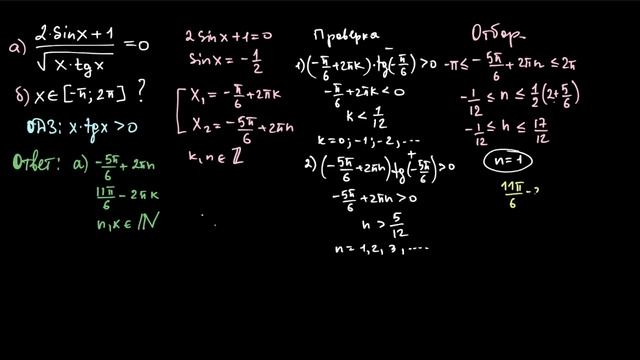 а) (2·sinx+1)/√(x·tgx) = 0
б) x∈[-π; 2π] ?
ОДЗ: x·tgx > 0
Ответ: а) -5π/6 + 2πn
11π/6 - 2πk
n,k ∈ ℕ
2sinx+1=0
sinx = -1/2
[ x₁ = -π/6 + 2πk
x₂ = -5π/6 + 2πn
k,n ∈ ℤ
Проверка
1) (-π/6 + 2πk)·tg(-π/6) > 0
-
-π/6 + 2πk < 0
k < 1/12
k = 0; -1, -2, ...
2) (-5π/6 + 2πn)·tg(-5π/6) > 0
+
-5π/6 + 2πn > 0
n > 5/12
n = 1, 2, 3, ....
Отбор
-π ≤ -5π/6 + 2πn ≤ 2π
-1/12 ≤ n ≤ 1/2(2+5/6)
-1/12 ≤ n ≤ 17/12
n=1
11π/6 -